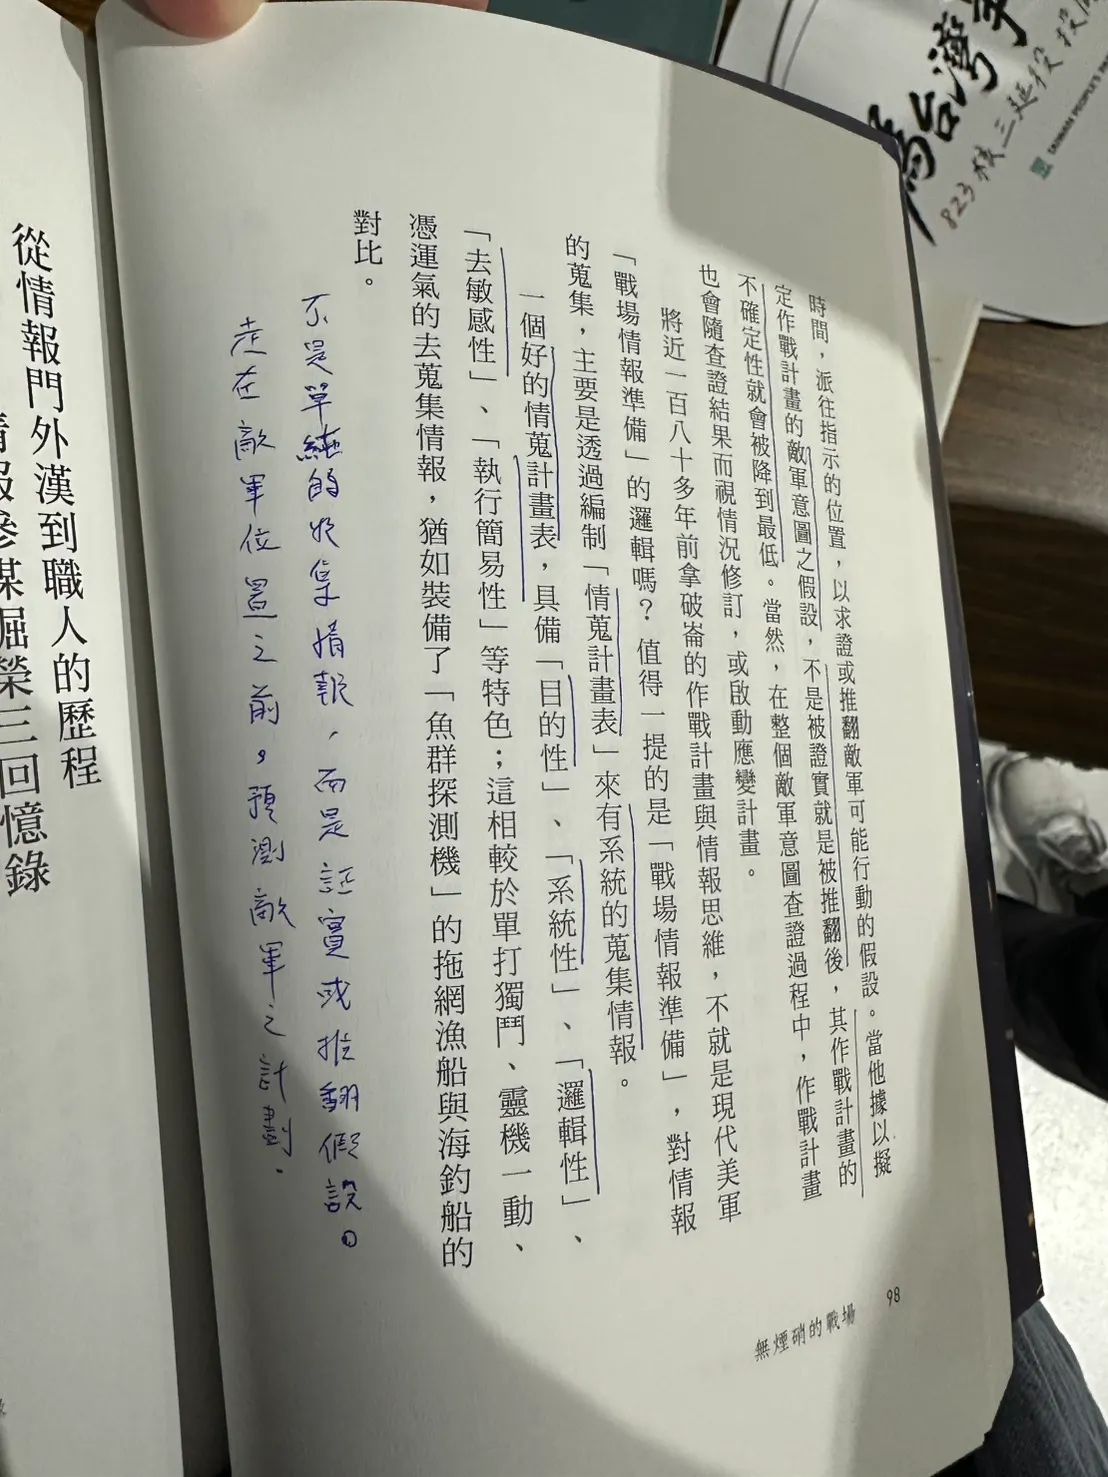 時間，派往指示的位置，以求證或推翻敵軍可能行動的假設。當他據以擬
定作戰計畫的敵軍意圖之假設，不是被證實就是被推翻後，其作戰計畫的
不確定性就會被降到最低。當然，在整個敵軍意圖查證過程中，作戰計畫
也會隨查證結果而視情況修訂，或啟動應變計畫。
將近一百八十多年前拿破崙的作戰計畫與情報思維，不就是現代美軍
「戰場情報準備」的邏輯嗎？值得一提的是「戰場情報準備」，對情報
的蒐集，主要是透過編制「情蒐計畫表」來有系統的蒐集情報。
一個好的情蒐計畫表，具備「目的性」、「系統性」、「邏輯性」、
「去敏感性」、「執行簡易性」等特色；這相較於單打獨鬥、靈機一動、
憑運氣的去蒐集情報，猶如裝備了「魚群探測機」的拖網漁船與海釣船的
對比。
不是單純的收集情報，而是証實或推翻假設。
走在敵軍位置之前。預測敵軍之計劃.
無煙硝的戰場
98
從情報門外漢到職人的歷程
情報參謀崛榮三回憶錄
台灣
823 核三延役投
TAIWAN PEOPLE'S